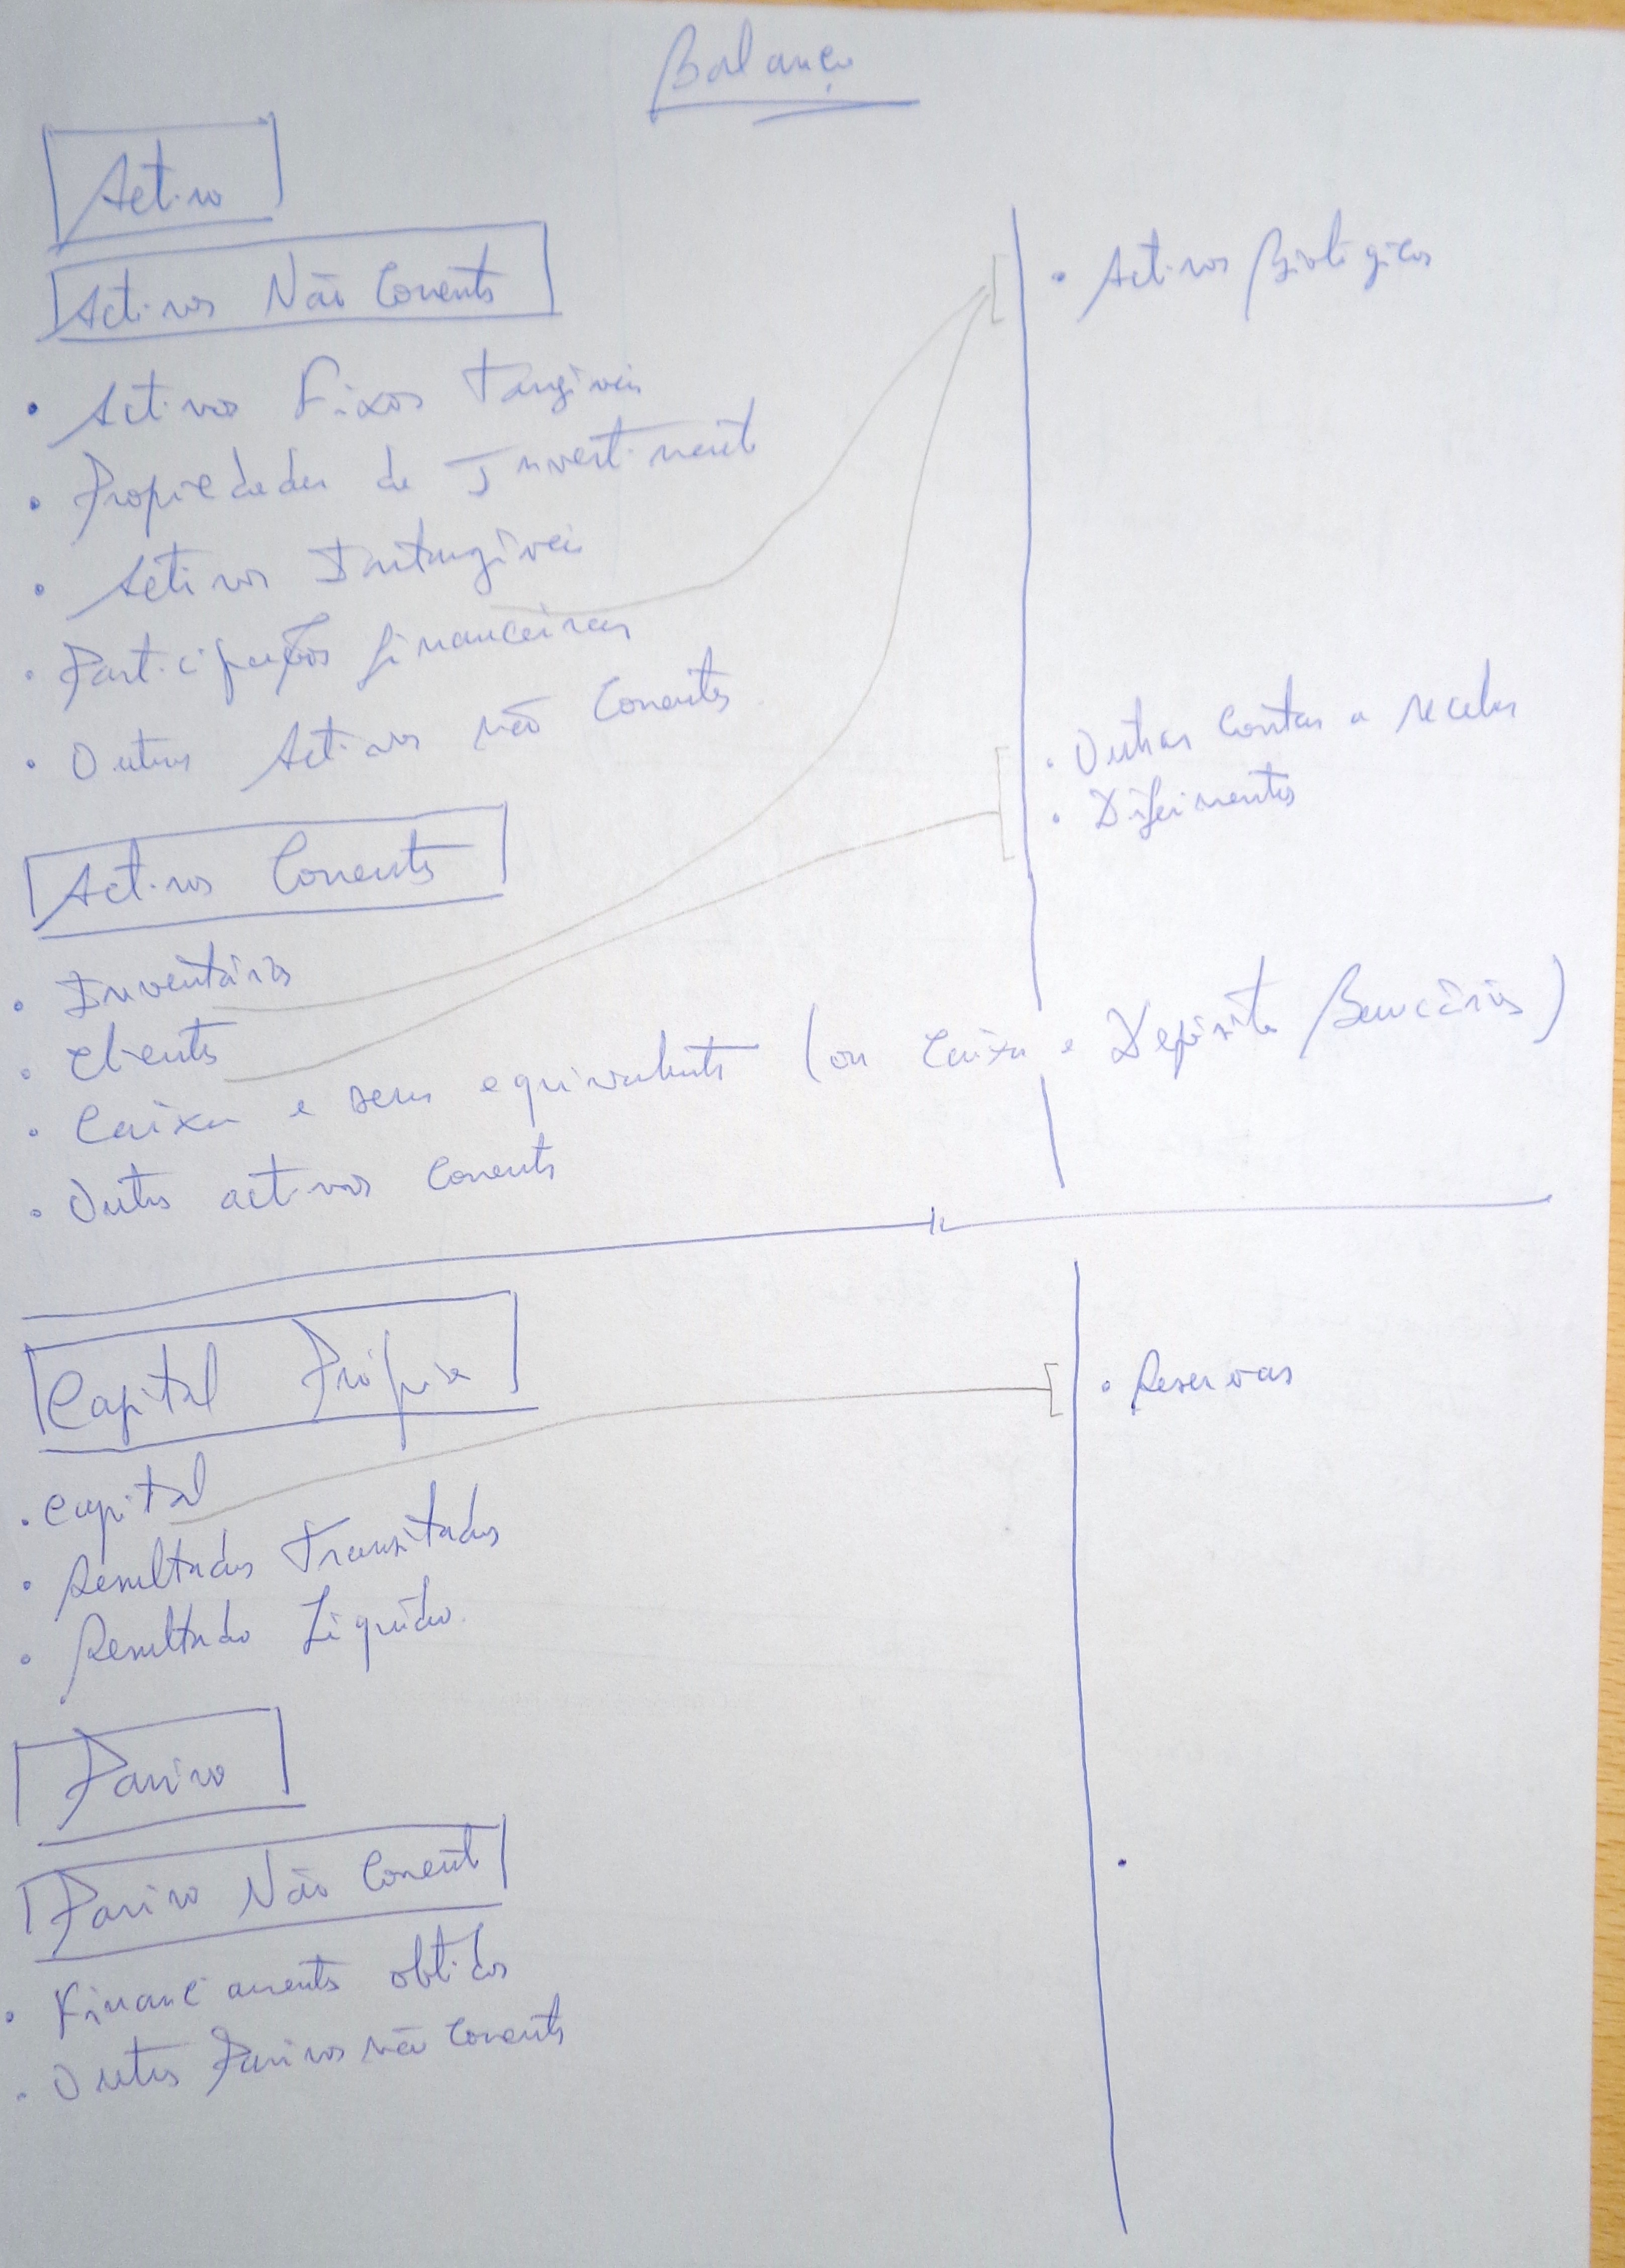 Balanço
Activo
Activos Não Correntes
• Activos Fixos Tangíveis
• Propiedades de Investimento
• Activos Intangíveis
• Participações financeiras
• Outros Activos não Correntes
• Activos Biológicos
• Outras Contas a receber
• Diferimentos
Activos Correntes
• Inventários
• Clientes
• Caixa e seus equivalentes (ou Caixa e Depósitos Bancários)
• Outros activos Correntes
Capital Próprio
• Capital
• Resultados Transitados
• Resultado Líquido
• Reservas
Passivo
Passivo Não Corrente
• Financiamentos obtidos
• Outros Passivos não Correntes